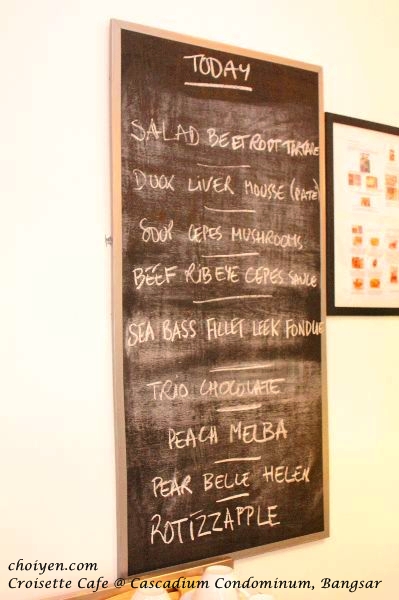 TODAY
SALAD BEETROOT TARTARE
DUCK LIVER MOUSSE (PATÉ)
SOUP CEPES MUSHROOMS
BEEF RIB EYE CEPES SAUCE
SEA BASS FILLET LEEK FONDUE
TRIO CHOCOLATE
PEACH MELBA
PEAR BELLE HELEN
ROTIZZAPPLE
choiyen.com
Croisette Cafe @ Cascadium Condominum, Bangsar